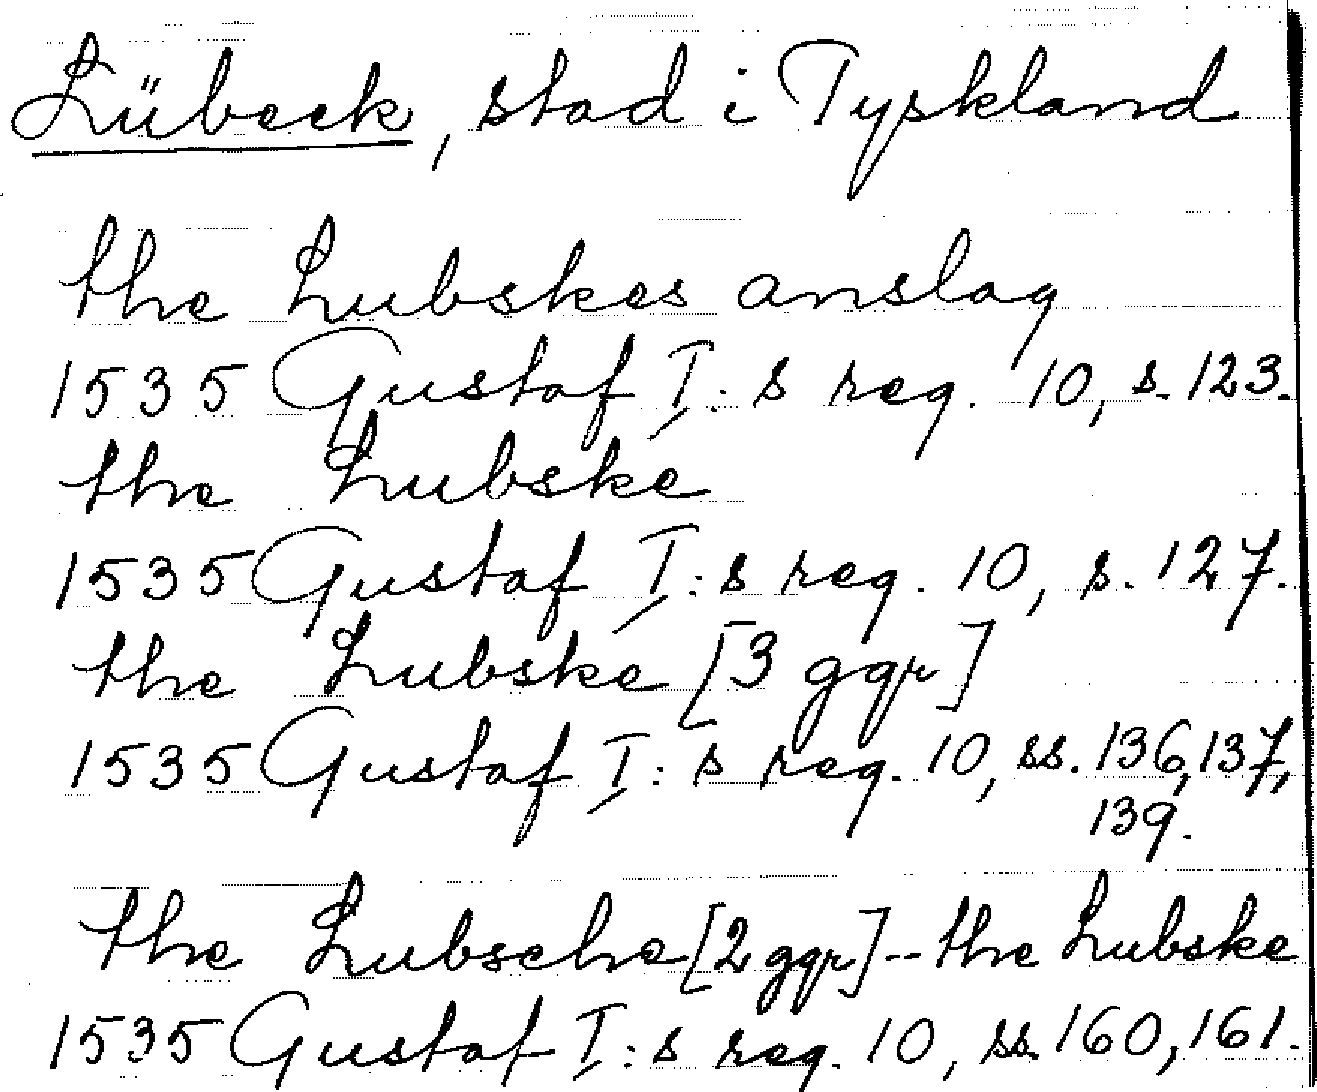 Lübeck, stad i Tyskland
the Lubskes anslag
1535 Gustaf I:s reg. 10, s. 123.
the Lubske
1535 Gustaf I:s reg. 10, s. 127.
the Lubske [3 ggr]
1535 Gustaf I:s reg. 10, ss. 136, 137,
139.
the Lubsche [2 ggr] -- the Lubske
1535 Gustaf I:s reg. 10, ss. 160, 161.